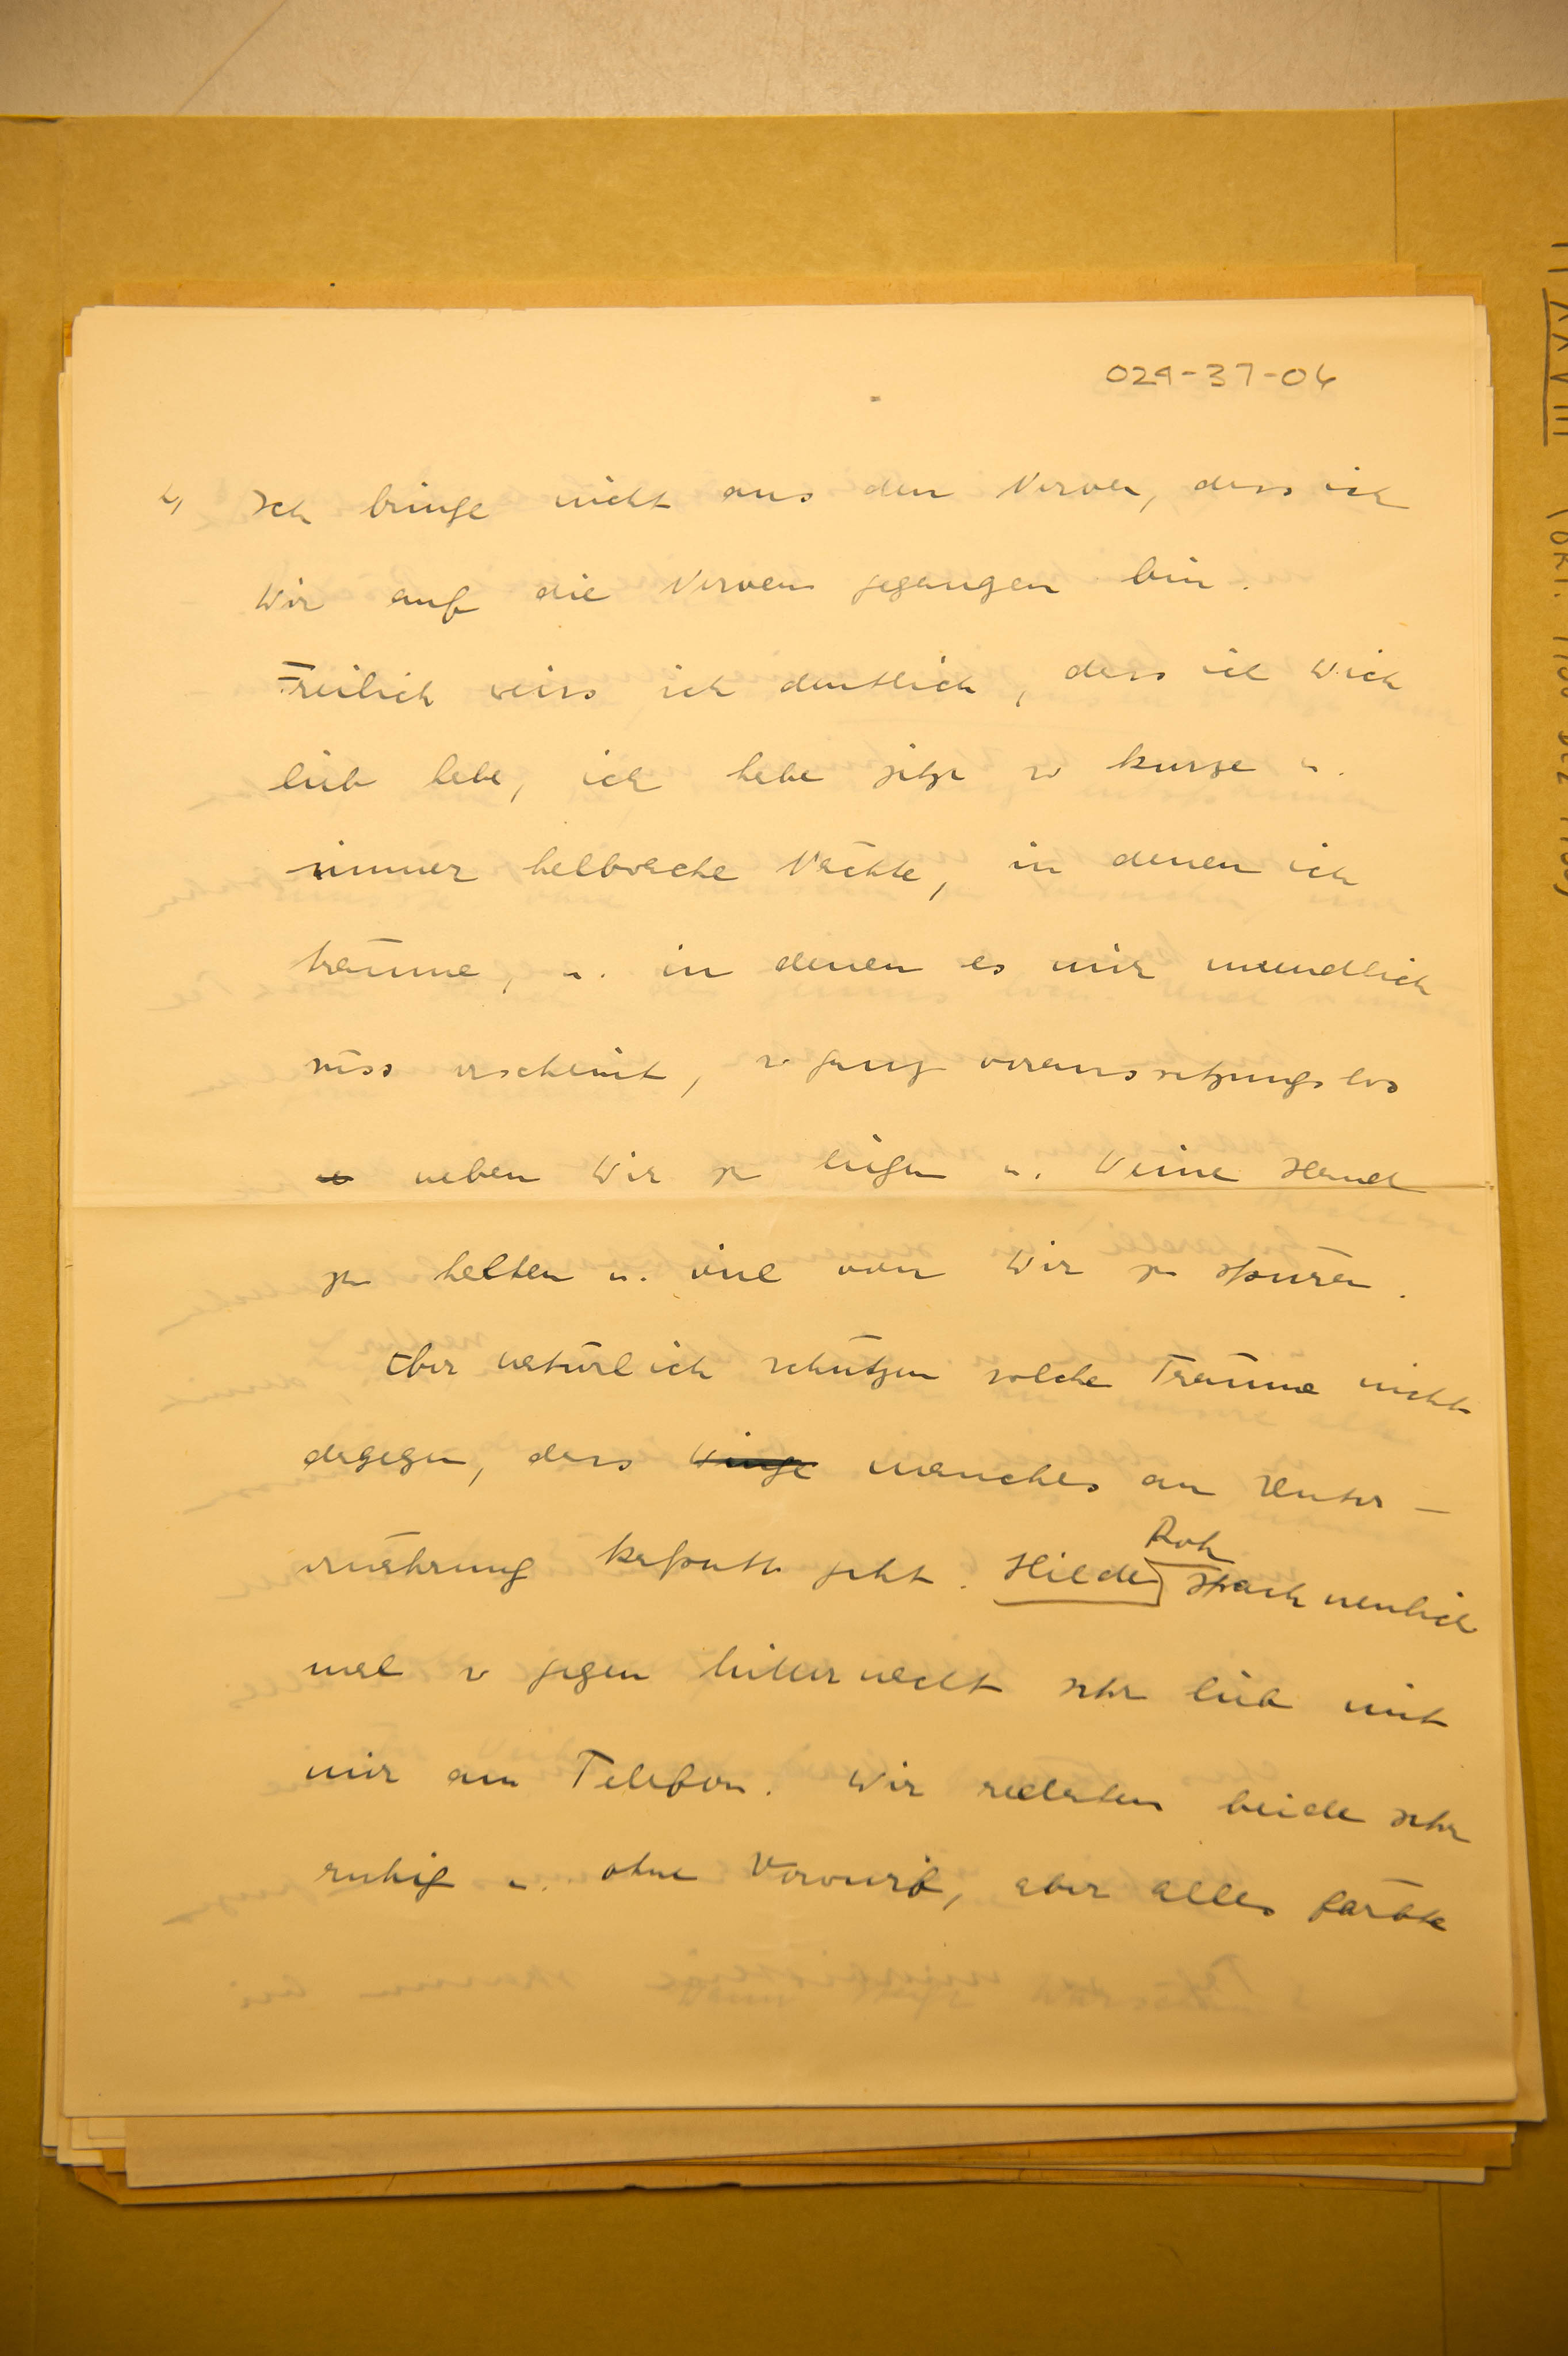 029-37-06
4) Ich bringe nicht aus den Nerven, dass ich
Dir auf die Nerven gegangen bin.
Freilich weiss ich deutlich, dass ich Dich
lieb habe, ich habe jetzt so kurze u.
immer halbwache Nächte, in denen ich
träume, u. in denen es mir unendlich
süss erscheint, so ganz voraussetzungslos
neben Dir zu liegen u. Deine Hand
zu halten u. viel von Dir zu spüren.
Aber natürlich schützen solche Träume nicht
dagegen, dass Dinge manches an Unter-
ernährung kaputt geht. Hilde Roh sprach neulich
mal so gegen Mitternacht sehr lieb mit
mir am Telefon. Wir redeten beide sehr
ruhig u. ohne Vorwurf, aber alles färbte